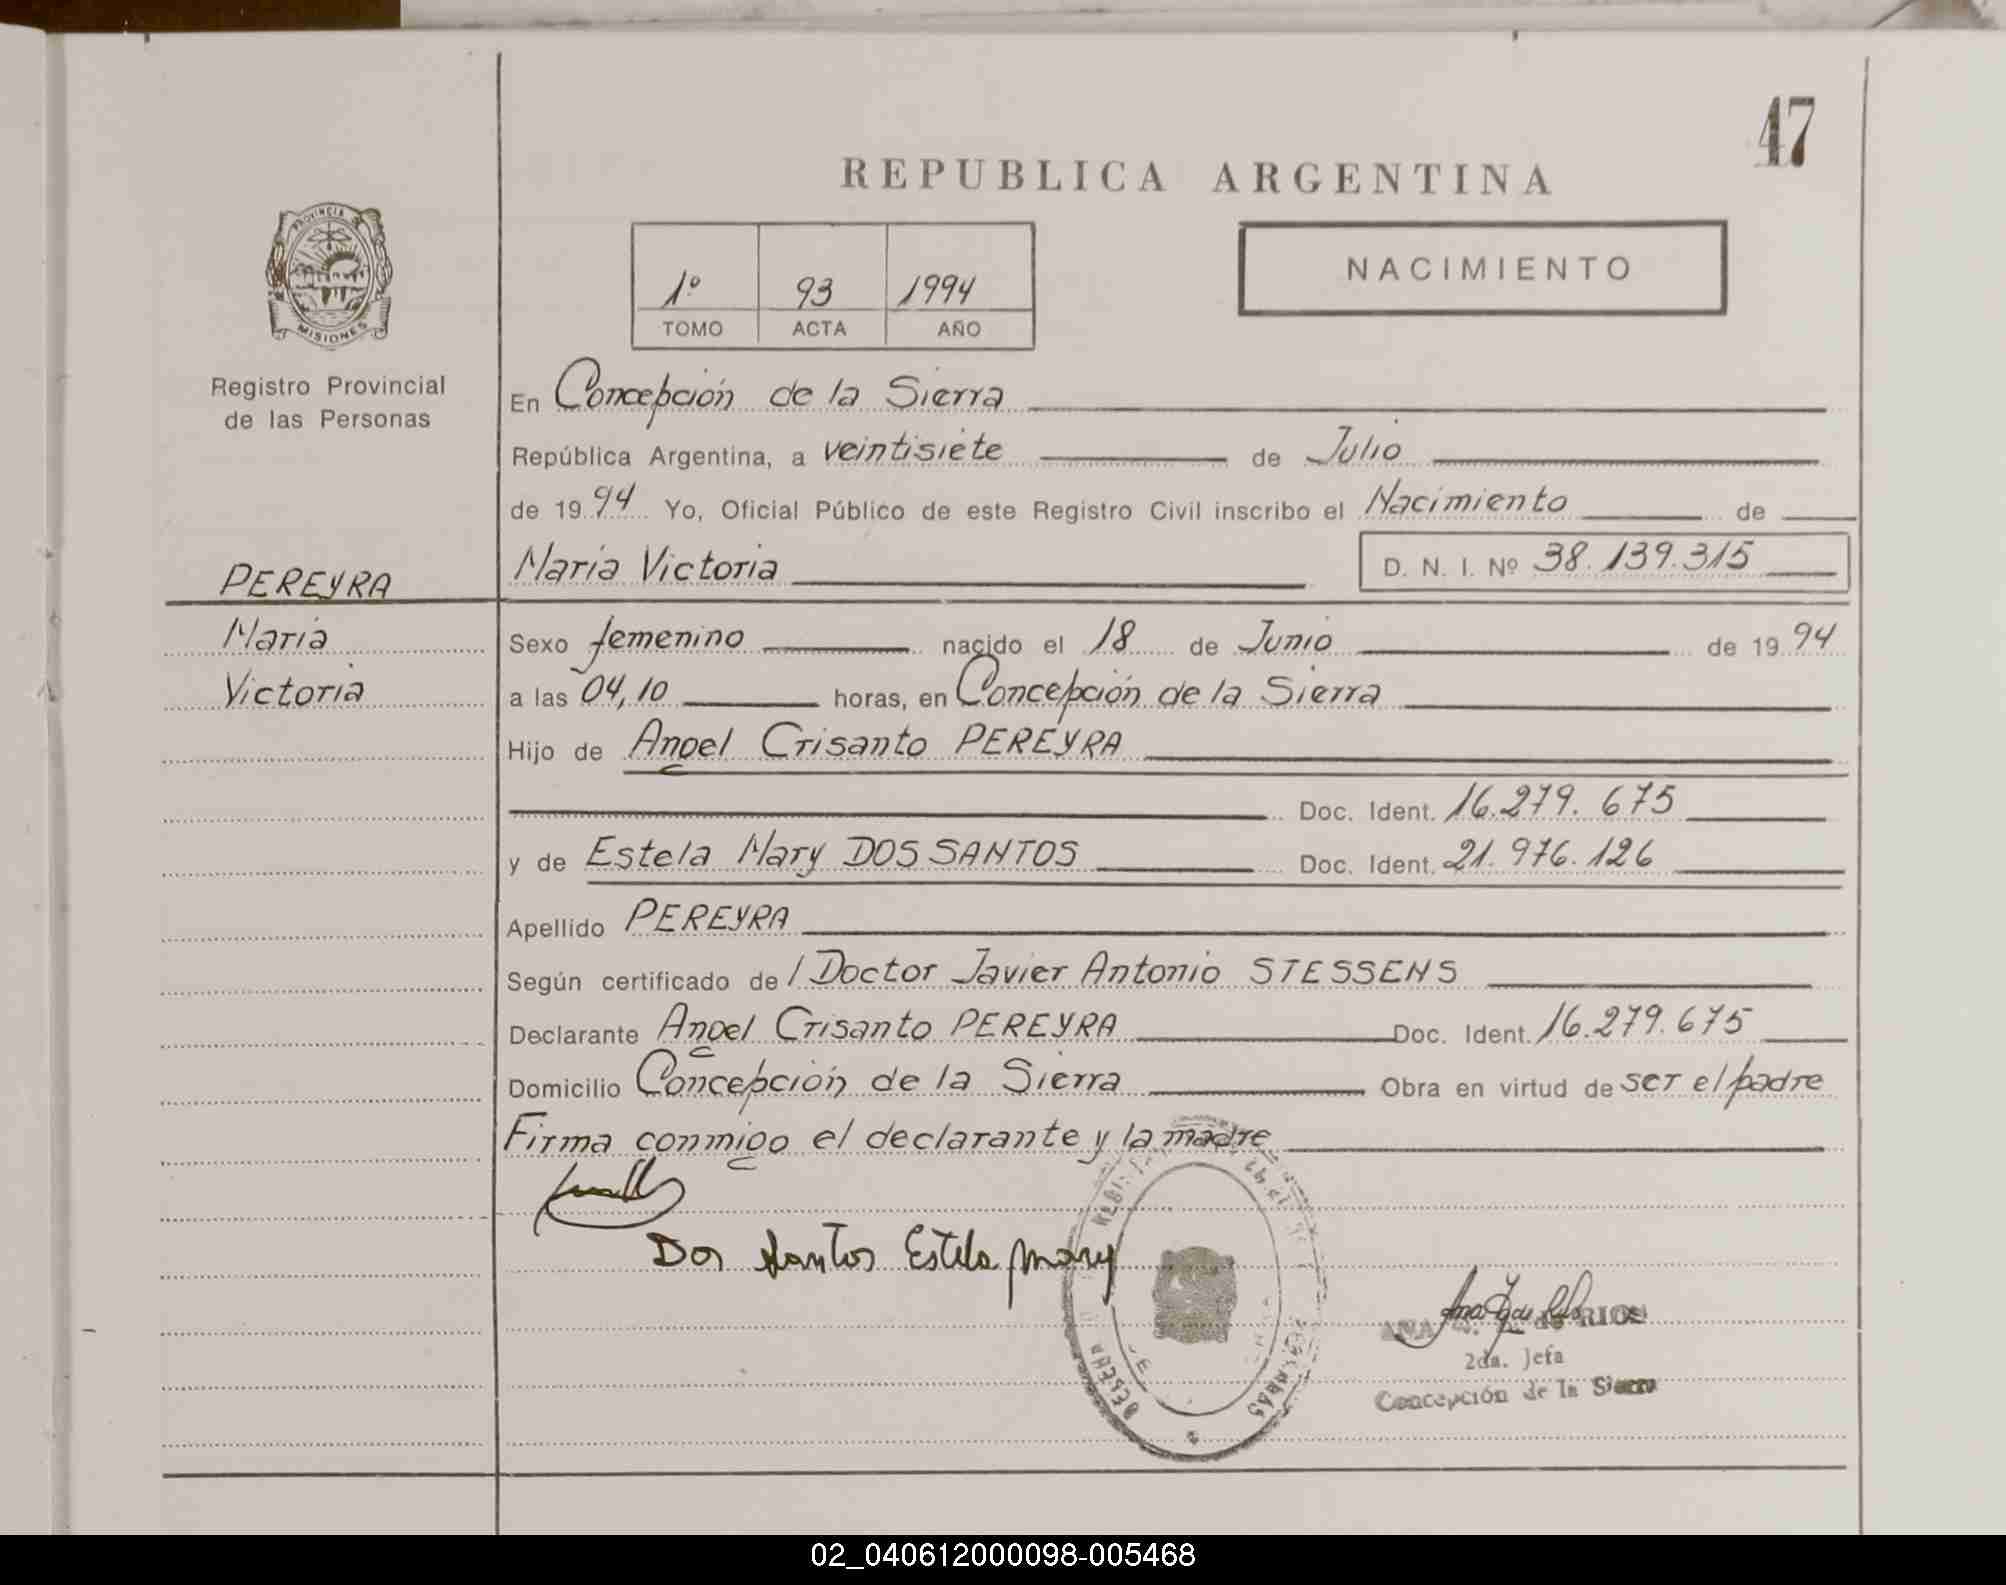 47
REPUBLICA ARGENTINA
PROVINCIA DE
MISIONES
Registro Provincial
de las Personas
1º 93 1994
TOMO ACTA AÑO
NACIMIENTO
En Concepción de la Sierra
República Argentina, a veintisiete de Julio
de 1994 Yo, Oficial Público de este Registro Civil inscribo el Nacimiento de
PEREYRA
María Victoria D. N. I. Nº 38.139.315
María
Sexo femenino nacido el 18 de Junio de 1994
Victoria
a las 04,10 horas, en Concepción de la Sierra
Hijo de Angel Crisanto PEREYRA
Doc. Ident. 16.279.675
y de Estela Mary DOS SANTOS Doc. Ident. 21.976.126
Apellido PEREYRA
Según certificado de / Doctor Javier Antonio STESSENS
Declarante Angel Crisanto PEREYRA Doc. Ident. 16.279.675
Domicilio Concepción de la Sierra Obra en virtud de ser el padre
Firma conmigo el declarante y la madre
Dos Santos Estela Mary
ANA de RIOS
2da. Jefa
Concepción de la Sierra
02_040612000098-005468